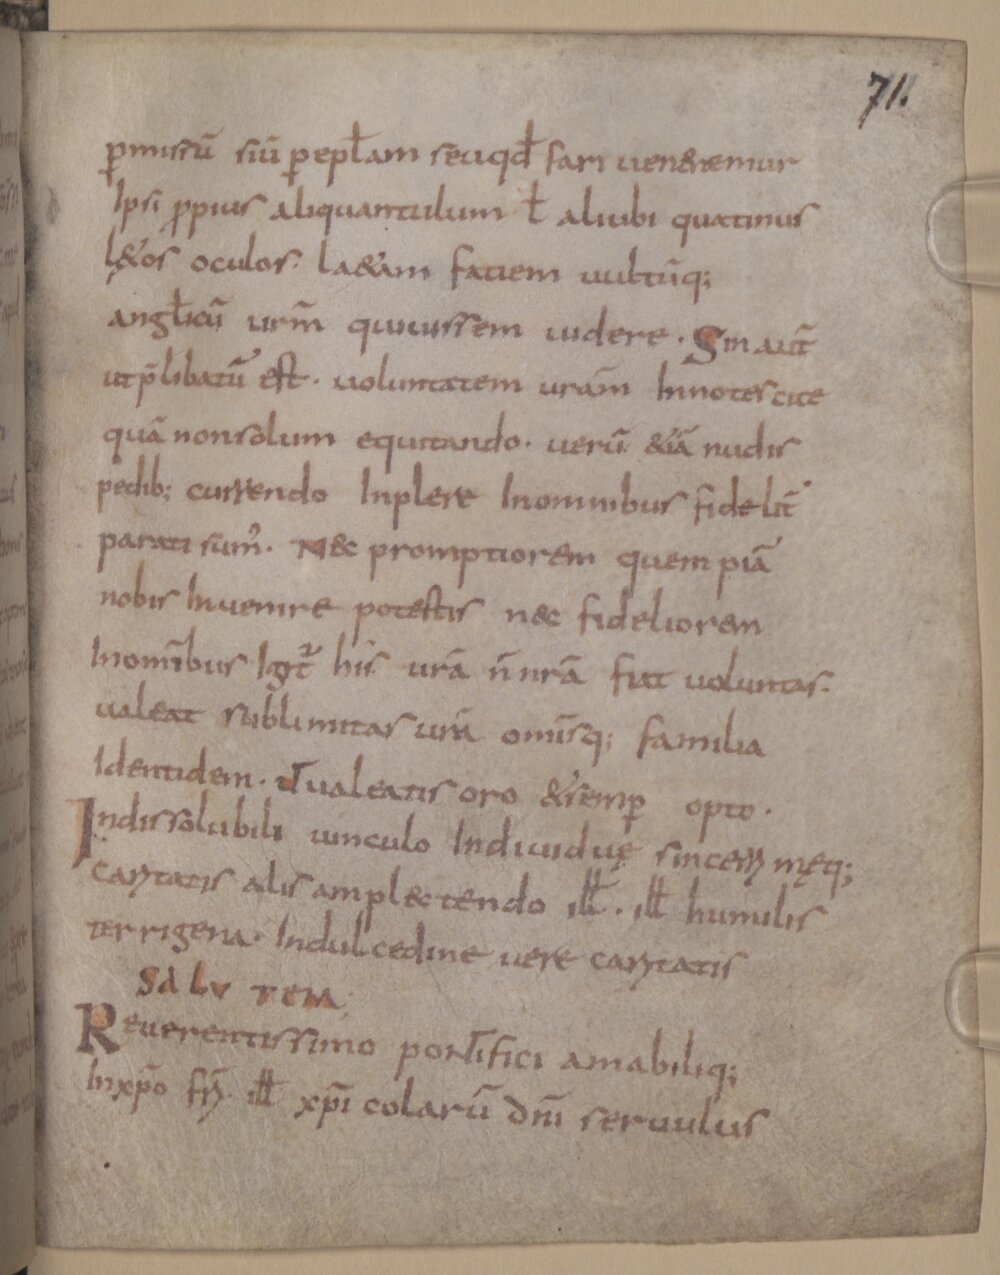 71.
p̲missū siū p̲ epł̄am sēuqd̄ fari uen&remur
Ipsi ꝓpius aliquantulum ł aliubi quatinus
l&os oculos. la&am faciem uultūq;
angłicū urm̄ quiuissem uidere. Sin aut̄
ut p̄libatū est. uoluntatem urām Innotescite
quā non solum equitando. uerū &iā nudis
pedib; currendo Inplere Inomnibus fidelit̄
parati sum᾽. Nec promptiorem quempiā
nobis Inuenire potestis nec fideliorem
Inomībus Igit̄ his urā n̄ nrā fiat uoluntas.
ualeat sublimitas urā omīsq; familia
Identidem. Ut ualeatis oro & semp̲ opto.
Indissolubili uinculo Indiuiduę sinceręq;
carytatis alis amplectendo iłł. iłł humilis
terrigena. Indulcedine uere carytatis
SALUTEM;
Reuerentissimo pontifici amabiliq;
Inxp̄o fr̄ iłł xp̄icolarū dn̄i seruulus